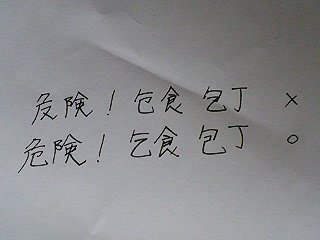 危険！包食包丁 ×
危険！乞食包丁 ○